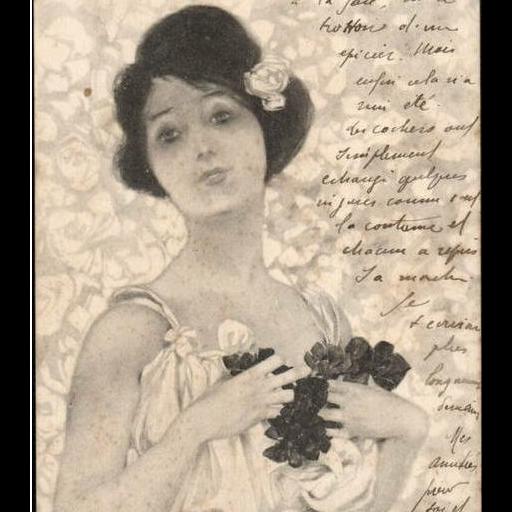 trottoir d'un
épicier. Mais
enfin cela n'a
rien été.
les cochers ont
simplement
échangé quelques
injures comme c'est
la coutume et
chacun a repris
sa marche
Je
t'écrirai
plus
longuement
demain
Mes
amitiés
pour
toi et